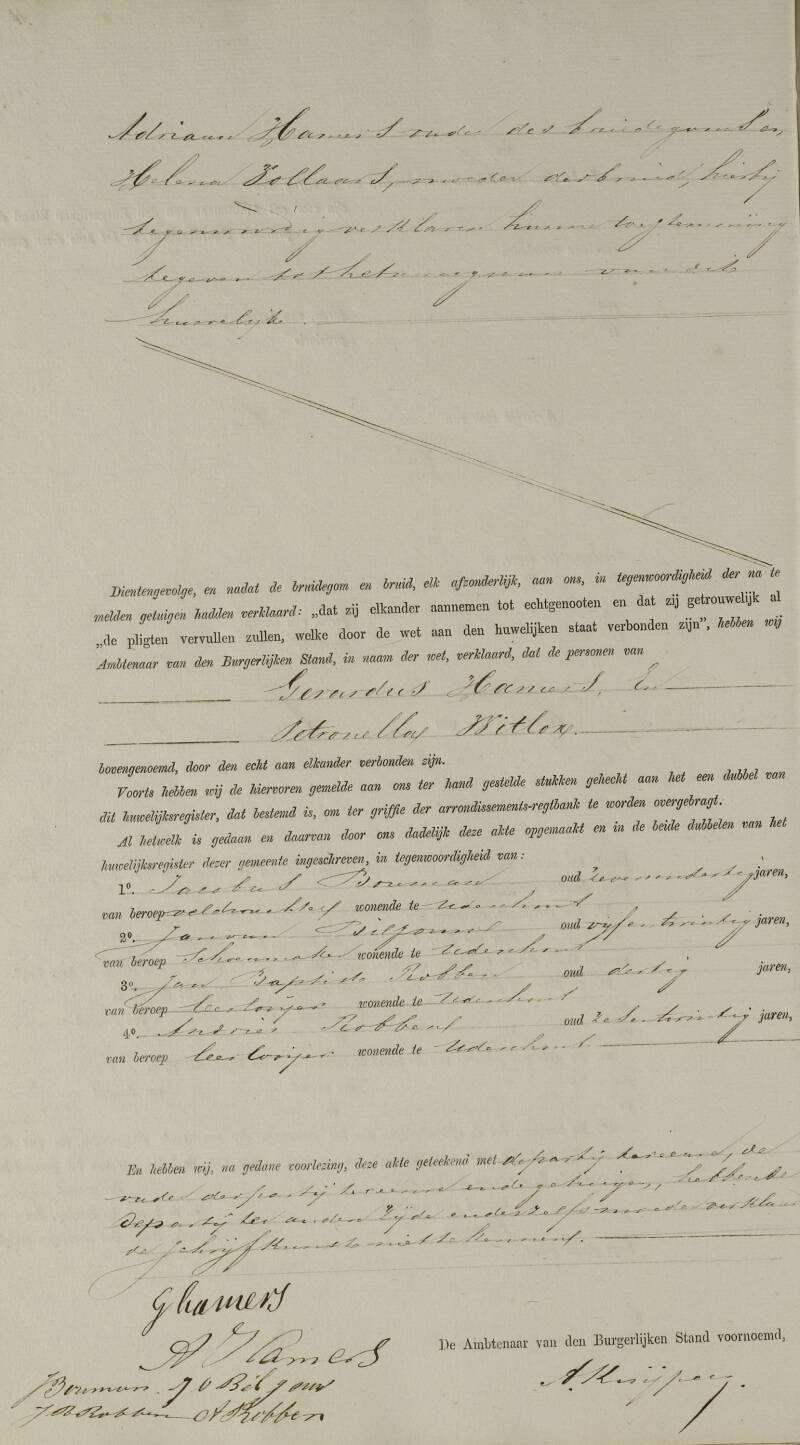 Adriaan Hamers vader des bruidegoms en,
Helena Vollaars, moeder der bruid, hierbij
tegenwoordig verklaren hunne toestemming
te geven tot het aangaan van dit
huwelijk.
Dientengevolge, en nadat de bruidegom en bruid, elk afzonderlijk, aan ons, in tegenwoordigheid der na te
melden getuigen hadden verklaard: „dat zij elkander aannemen tot echtgenooten en dat zij getrouwelijk al
„de pligten vervullen zullen, welke door de wet aan den huwelijken staat verbonden zijn”, hebben wij
Ambtenaar van den Burgerlijken Stand, in naam der wet, verklaard, dat de personen van
Gerardus Hamers, En
Petronella Witlox.
bovengenoemd, door den echt aan elkander verbonden zijn.
Voorts hebben wij de hiervoren gemelde aan ons ter hand gestelde stukken gehecht aan het een dubbel van
dit huwelijksregister, dat bestemd is, om ter griffie der arrondissements-regtbank te worden overgebragt.
Al hetwelk is gedaan en daarvan door ons dadelijk deze akte opgemaakt en in de beide dubbelen van het
huwelijksregister dezer gemeente ingeschreven, in tegenwoordigheid van:
1o. Jacobus Bouman oud zevenendertig jaren,
van beroep veldwachter wonende te Udenhout
2o. Jan van Bilgouw oud vyfentwintig jaren,
van beroep Schoenmaker wonende te Udenhout
3o. Jan Baptist Robben oud dertig jaren,
van beroep leerlooijer wonende te Udenhout
4o. Andries Robben oud zesentwintig jaren,
van beroep leerlooijer wonende te Udenhout
En hebben wij, na gedane voorlezing, deze akte geteekend met de partij ter eenre, de
vader der partij ter eenre en de getuigen, hebbende
de partij ter andere zijde en derzelfs moeder verklaard
de schrijfkunst niet te kennen.
G hamers
A Hamers
De Ambtenaar van den Burgerlijken Stand voornoemd,
J Bouman. J v Bilgouw
J B Robben A Robben